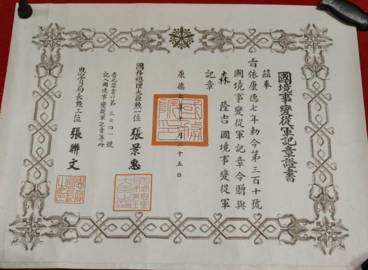 國境事變從軍記章證書
茲奉
旨依康德七年勅令第三百十號
國境事變從軍記章令贈與
森 隆吉 國境事變從軍
記章
康德 年 月二十五日
國務總理大臣勳一位 張景惠
查此證書 第 號
記入國境事變從軍記章簿冊
恩賞局長勳三位 張聯文